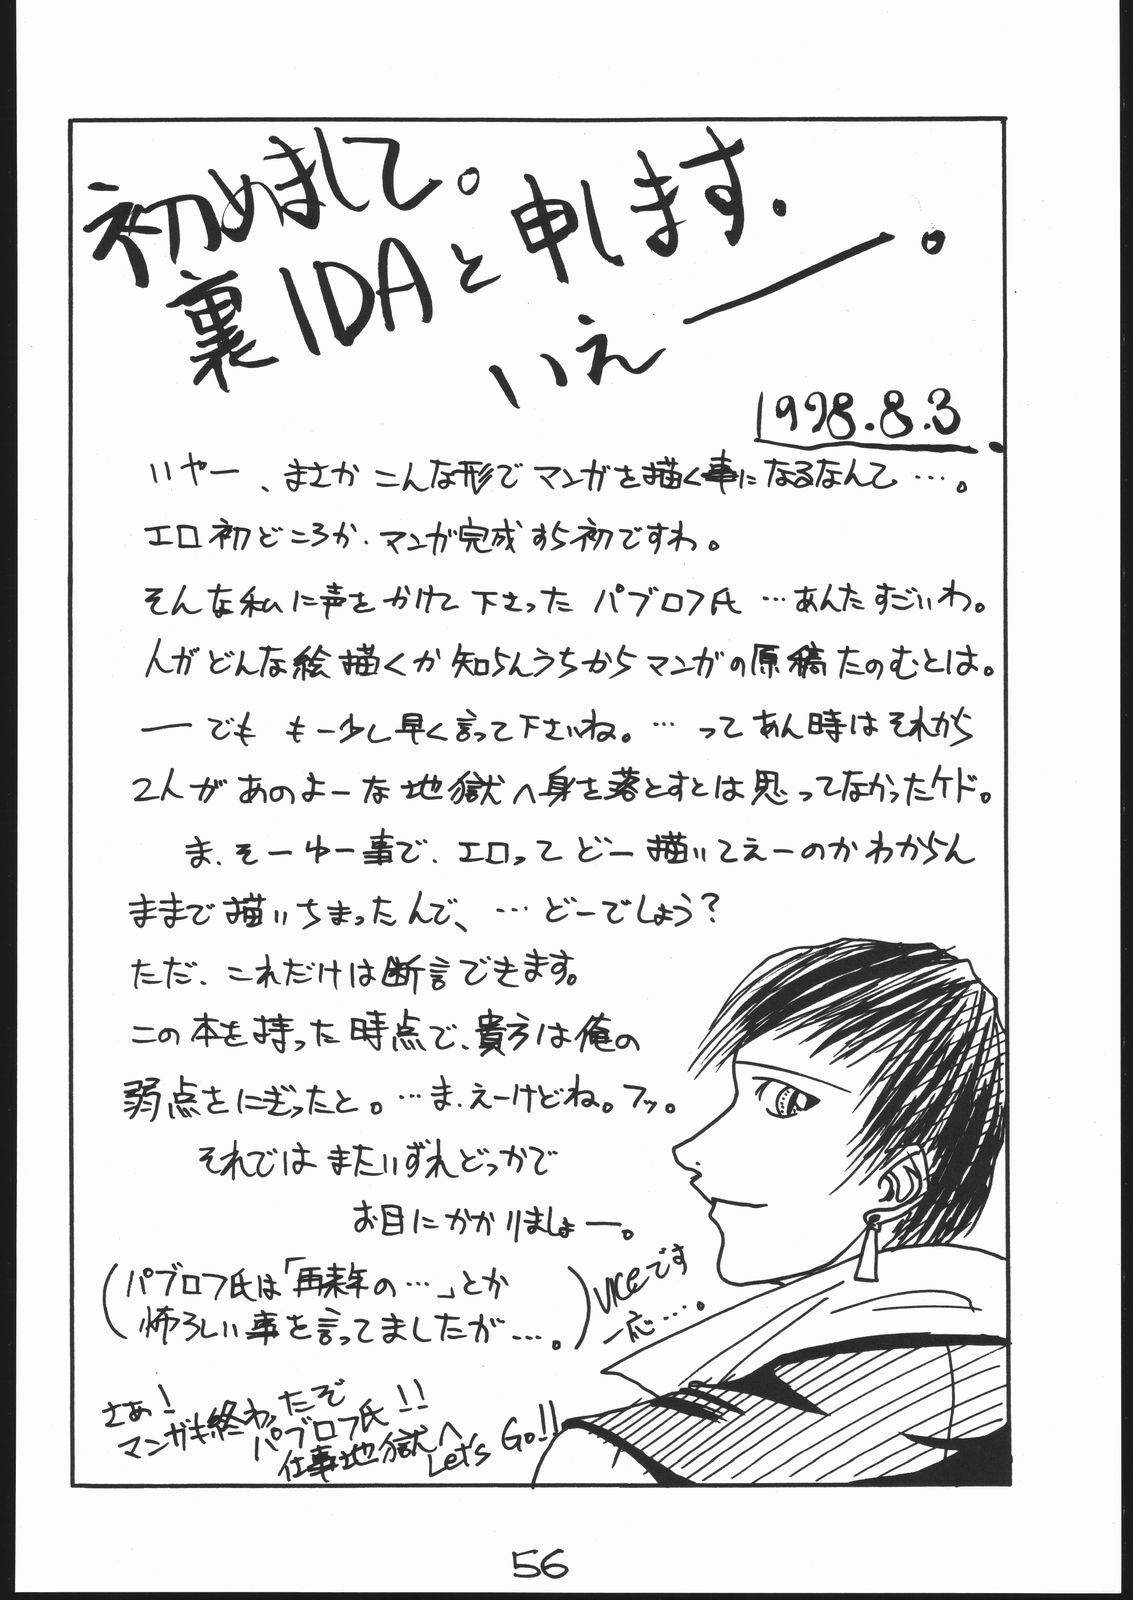 初めまして。
裏IDAと申します.
いえ――。
1998.8.3.
いやー、まさかこんな形でマンガを描く事になるなんて…。
エロ初どころか、マンガ完成すら初ですわ。
そんな私に声をかけて下さったパブロフ氏…あんたすごいわ。
人がどんな絵描くか知らんうちからマンガの原稿たのむとは。
―でも もー少し早く言って下さいね。…ってあん時はそれから
2人があのよーな地獄へ身を落とすとは思ってなかったケド。
ま、そーゆー事で、エロってどー描いてえーのかわからん
ままで描いちまったんで、…どーでしょう?
ただ、これだけは断言できます。
この本を持った時点で、貴方は俺の
弱点をにぎったと。…ま、えーけどね。フッ。
それではまたいずれどっかで
お目にかかりましょー。
(パブロフ氏は「再来年の…」とか
怖ろしい事を言ってましたが…。)
VICEです
一応…。
さあ!
マンガも終わったぞ
パブロフ氏!!
仕事地獄へ
Let's Go!!
56